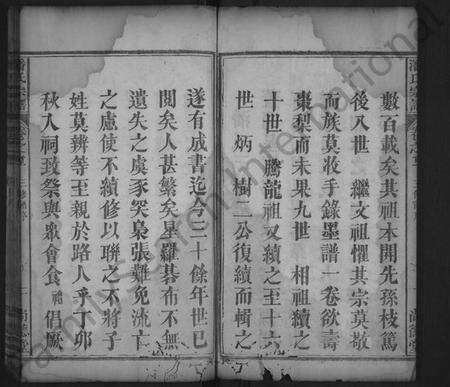 數百載矣其祖本開先孫枝篤
後八世 繼文祖懼其宗莫敬
而族莫收手錄墨譜一卷欲壽
棗梨而未果九世 相祖續之
十世 騰龍祖又續之至十六
世 炳 樹 二公復續而輯之
遂有成書迄今三十餘年世已
閱矣人甚繁矣星羅碁布不無
遺失之虞豕哭梟張難免流亡
之慮使不續修以聯之不將子
姓莫辨等至親於路人乎丁卯
秋入祠致祭與眾會食 倡厥